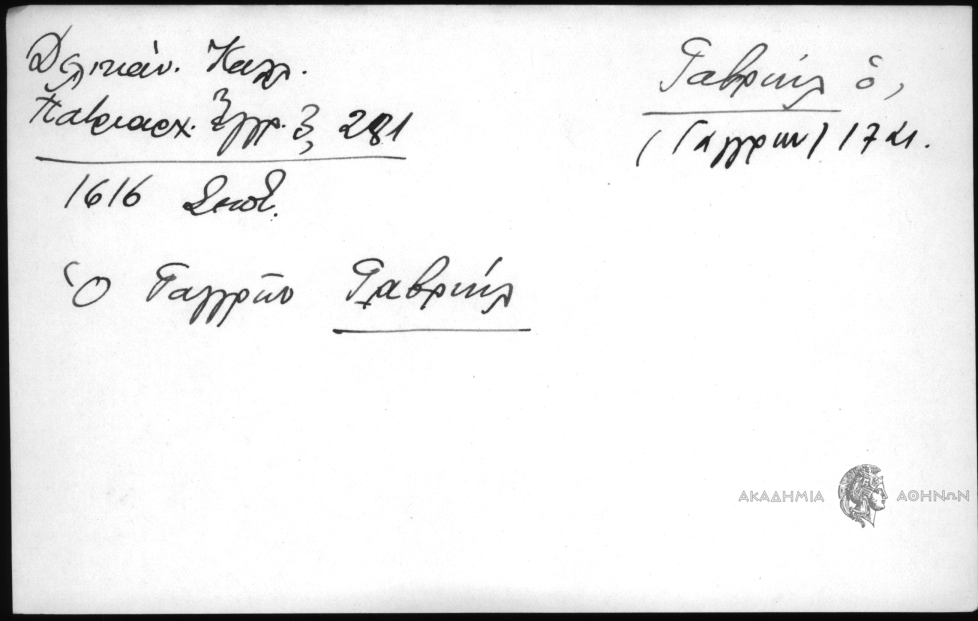 Δελικάν. Καλλ.
Πατριαρχ. Ἔγγρ. 3, 281
1616 Σεπτ.
Ὁ Γάγγρων Γαβριήλ
Γαβριήλ ὁ,
(Γάγγρων) 17 αι.
ΑΚΑΔΗΜΙΑ ΑΘΗΝΩΝ